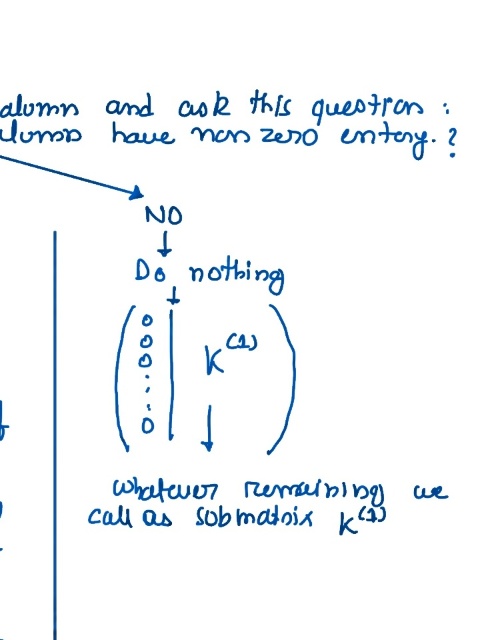 alumn and ask this question :
lumn have non zero entery. ?
NO
Do nothing
0
0
0
0
K^(1)
whatever remaining we
call as submatrix K^(1)